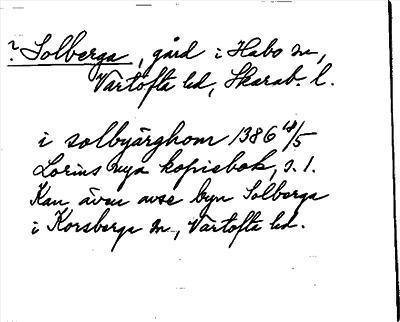 ? Solberga, gård i Habo sn,
Vartofta hd, Skarab. l.
i solbyärghom 1386 18/5
Lorins nya kopiebok, s. 1.
Kan även avse byn Solberga
i Korsberga sn, Vartofta hd.